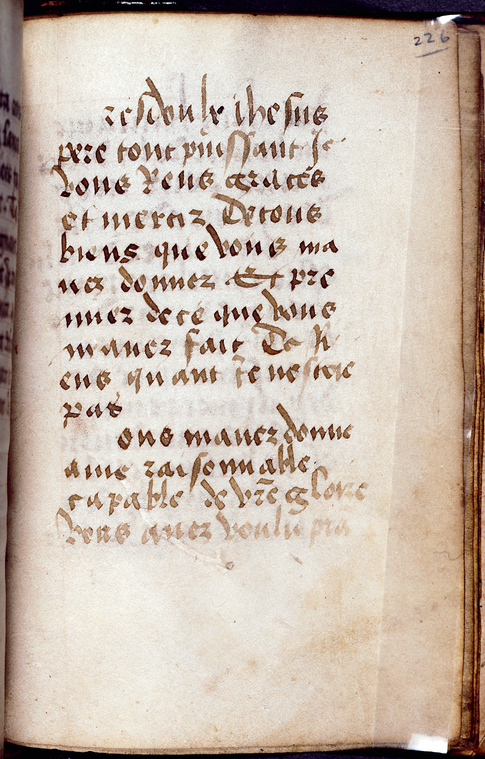 226
resdoulx ihesus
pere tout puissant Je
vous Rens graces
et merciz De tous
biens que vous ma
uez donnez Et pre
miez de ce que vous
mauez fait De Ri
ens quant Je nestoie
pas
ous mauez donne
ame raisonnable
capable de vr̃e gloire
vous auez voulu pra